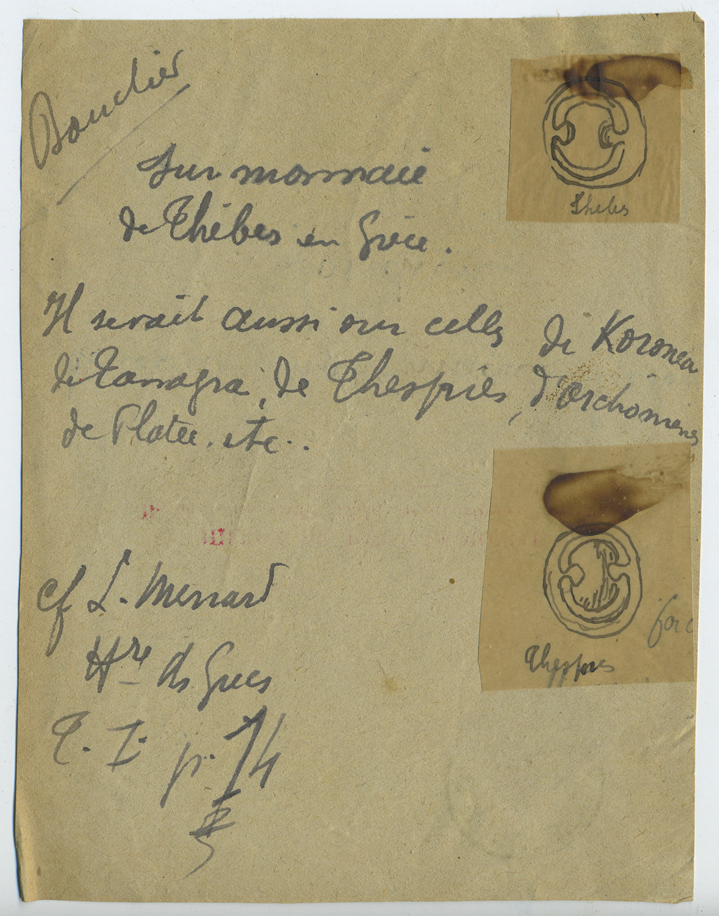 Bouclier
Sur monnaie
de Thèbes en Grèce.
Thèbes
Il serait aussi sur celles de Koronea
de Tanagra, de Thespies, d'orchomènes
de Platée. etc..
cf L. Menard
Hre des Grecs
T. I. p. 74
Thespies